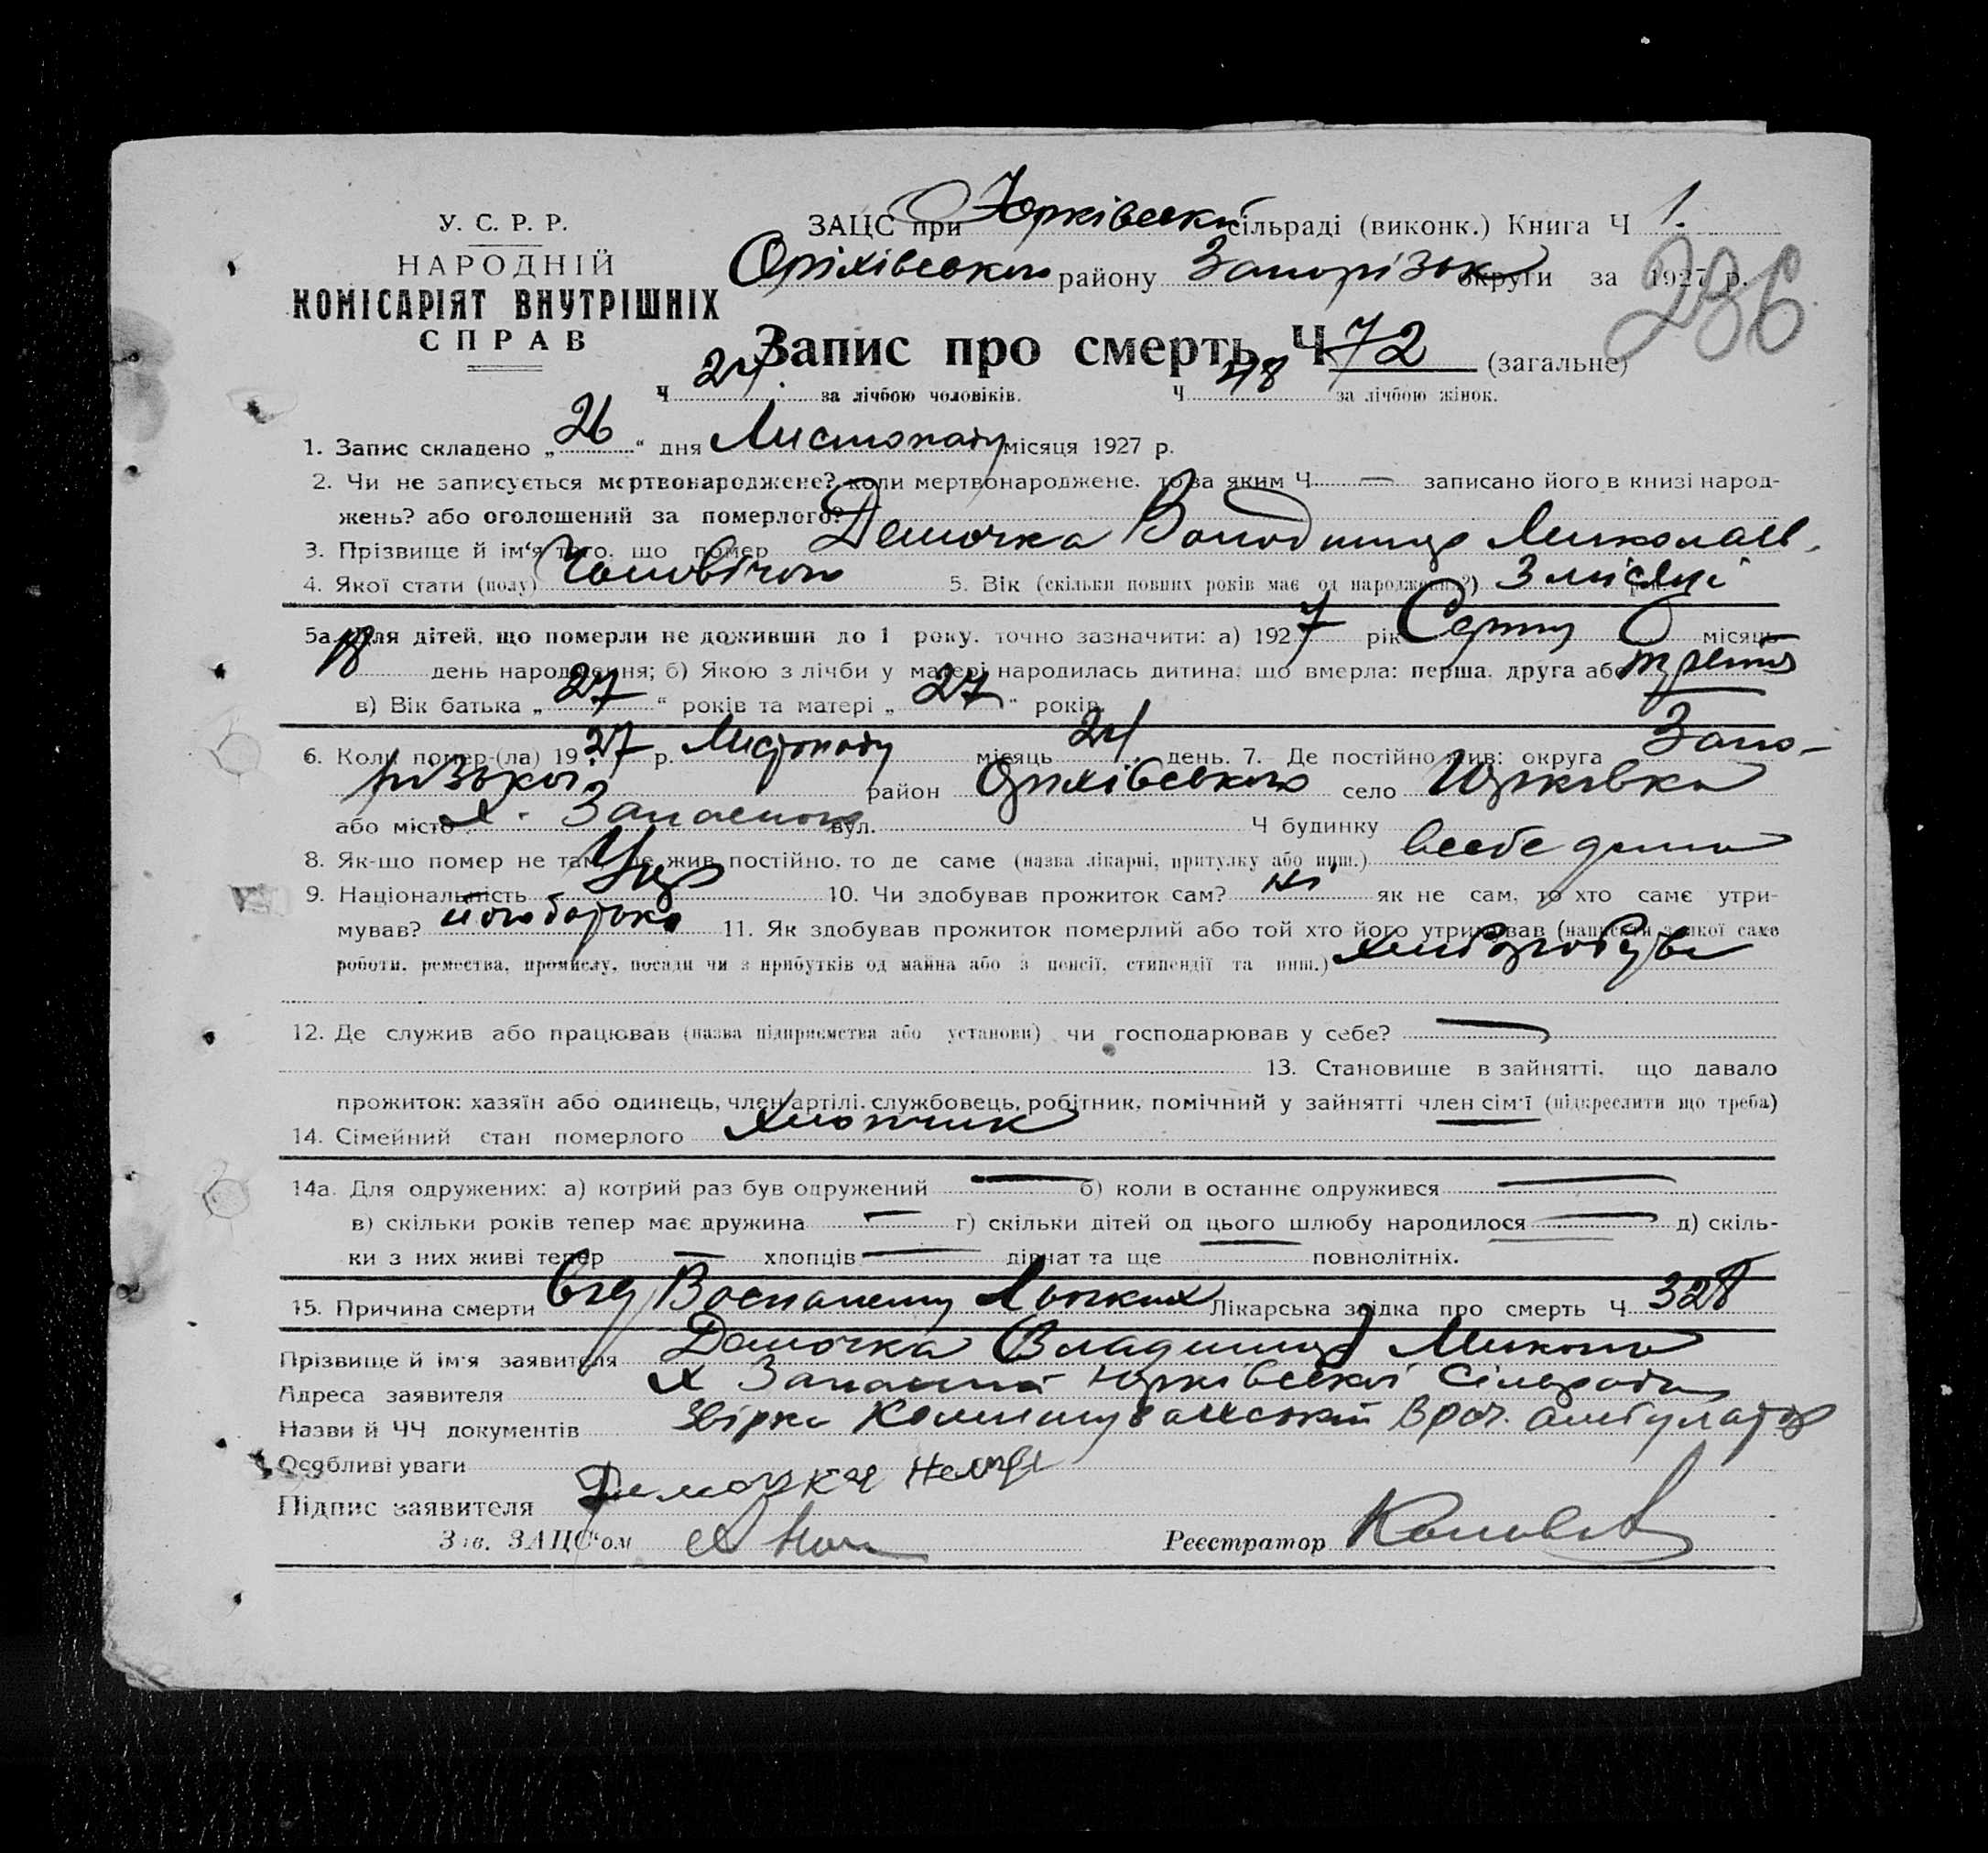 У. С. Р. Р.
НАРОДНІЙ
КОМІСАРІЯТ ВНУТРІШНІХ
СПРАВ
ЗАЦС при Юрківській сільраді (виконк.) Книга Ч 1.
Оріхівського району Запорізьк округи за 1927 р.
236
Запис про смерть Ч 72 (загальне)
Ч 24 за лічбою чоловіків. Ч 48 за лічбою жінок.
1. Запис складено „26“ дня Листопаду місяця 1927 р.
2. Чи не записується мертвонароджене? коли мертвонароджене, то за яким Ч — записано його в книзі народ-
жень? або оголошений за померлого?
3. Прізвище й ім‘я того, що помер Демочка Володимир Миколаєв.
4. Якої стати (полу) Чоловічої 5. Вік (скільки повних років має од народження?) 3 місяці
5а. Для дітей, що померли не доживши до 1 року, точно зазначити: а) 1927 рік Серпня місяць
18 день народження; б) Якою з лічби у матері народилась дитина, що вмерла: перша, друга або третя
в) Вік батька „27“ років та матері „27“ років.
6. Коли помер-(ла) 1927 р. Листопаду місяць 24 день. 7. Де постійно жив: округа Запо-
різької район Оріхівського село Юрківка
або місто х. вул. Ч будинку
8. Як-що помер не там, де жив постійно, то де саме (назва лікарні, притулку або инш.) всебе дома
9. Національність Укр 10. Чи здобував прожиток сам? ні як не сам, то хто саме утри-
мував? його батько 11. Як здобував прожиток померлий або той хто його утримував (написати з якої саме
роботи, ремества, промислу, посади чи з прибутків од майна або з пенсії, стипендії та инш.) хліборобув
12. Де служив або працював (назва підприємства або установи) чи господарював у себе? —
13. Становище в зайнятті, що давало
прожиток: хазяїн або одинець, член артілі, службовець, робітник, помічний у зайнятті член сім‘ї (підкреслити що треба)
14. Сімейний стан померлого Хлопчик
14а. Для одружених: а) котрий раз був одружений — б) коли в останнє одружився —
в) скільки років тепер має дружина — г) скільки дітей од цього шлюбу народилося — д) скіль-
ки з них живі тепер — хлопців — дівчат та ще — повнолітніх.
15. Причина смерти від Лікарська звідка про смерть Ч 328
Прізвище й ім‘я заявителя Демочка Владимир Микола
Адреса заявителя х Юрківської Сільради
Назви й ЧЧ документів Врач. амбулатор
Особливі уваги
Підпис заявителя Демочка
Зав. ЗАЦС‘ом
Реєстратор